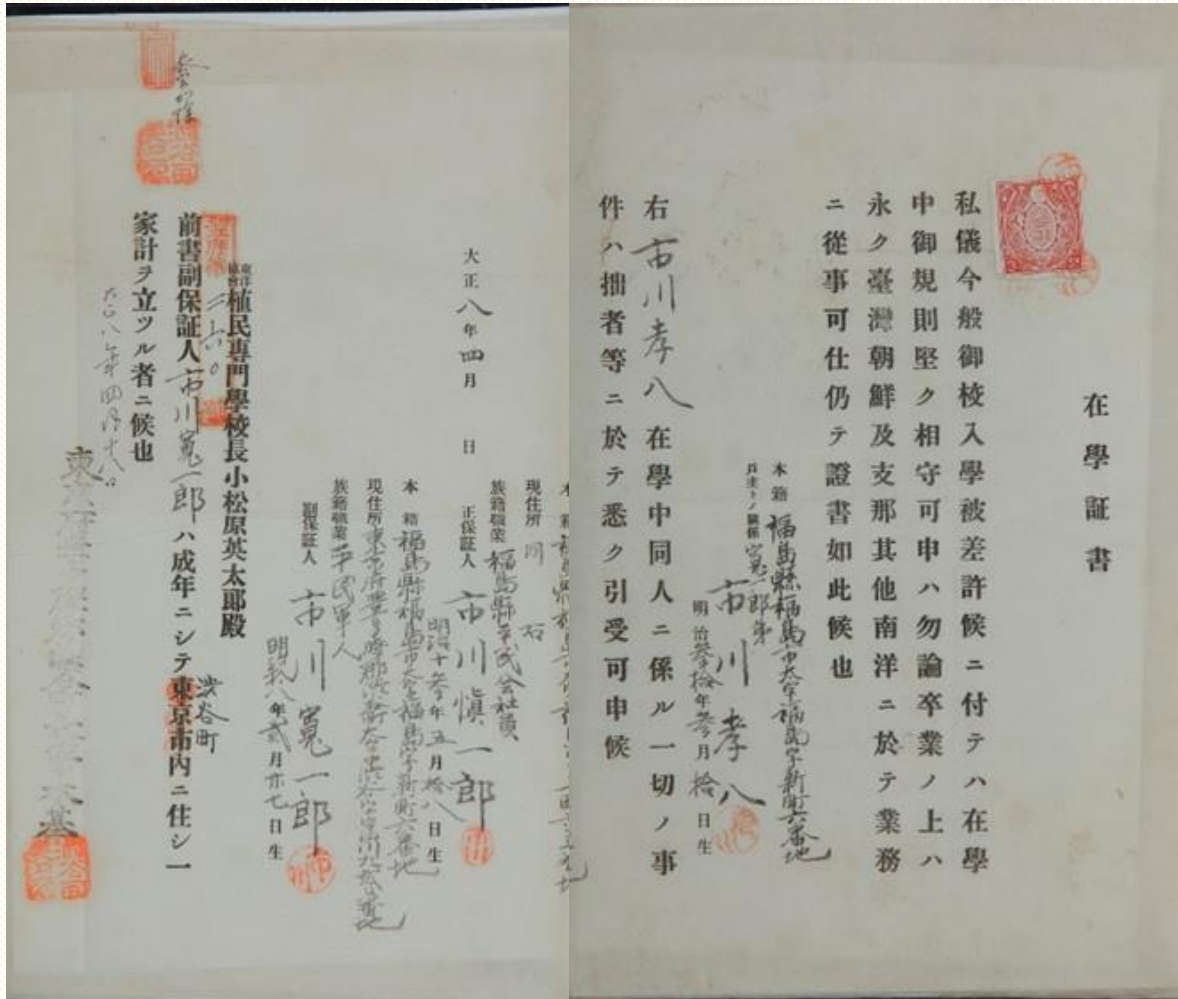 在學証書
私儀今般御校入學被差許候ニ付テハ在學
中御規則堅ク相守可申ハ勿論卒業ノ上ハ
永ク臺灣朝鮮及支那其他南洋ニ於テ業務
ニ從事可仕仍テ證書如此候也
本籍 福島縣福島市大字福島字新町六番地
戸主トノ關係 寬一郎弟
市川孝八
明治參拾年參月拾日生
右市川孝八在學中同人ニ係ル一切ノ事
件ハ拙者等ニ於テ悉ク引受可申候
現住所 同右
族籍職業 福島縣平民会社員
正保証人 市川慎一郎
明治十參年五月拾八日生
本籍 福島縣福島市大字福島字新町六番地
現住所 東京府豊多摩郡渋谷町大字
族籍職業 平民軍人
副保証人 市川寬一郎
明治八年貳月廿七日生
大正八年四月 日
東洋協會植民專門學校長小松原英太郎殿
前書副保証人市川寬一郎ハ成年ニシテ東京市内ニ住シ一
渋谷町
家計ヲ立ツル者ニ候也
大正八年四月十八日